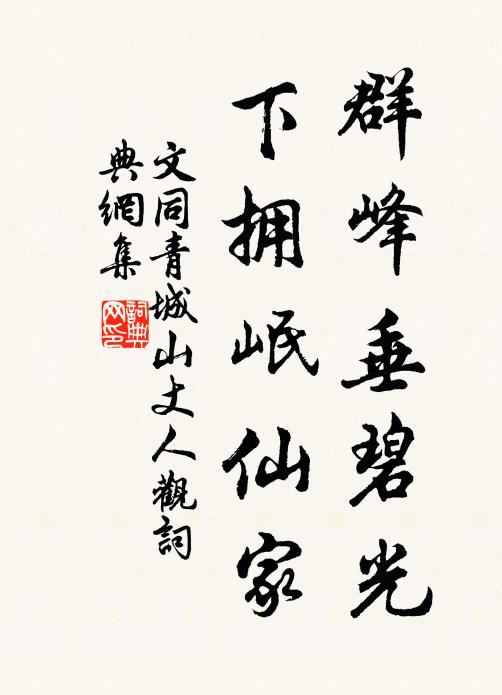 群峰垂碧光
下拥岷仙家
文同青城山丈人觀詞
典網集
詞典网印